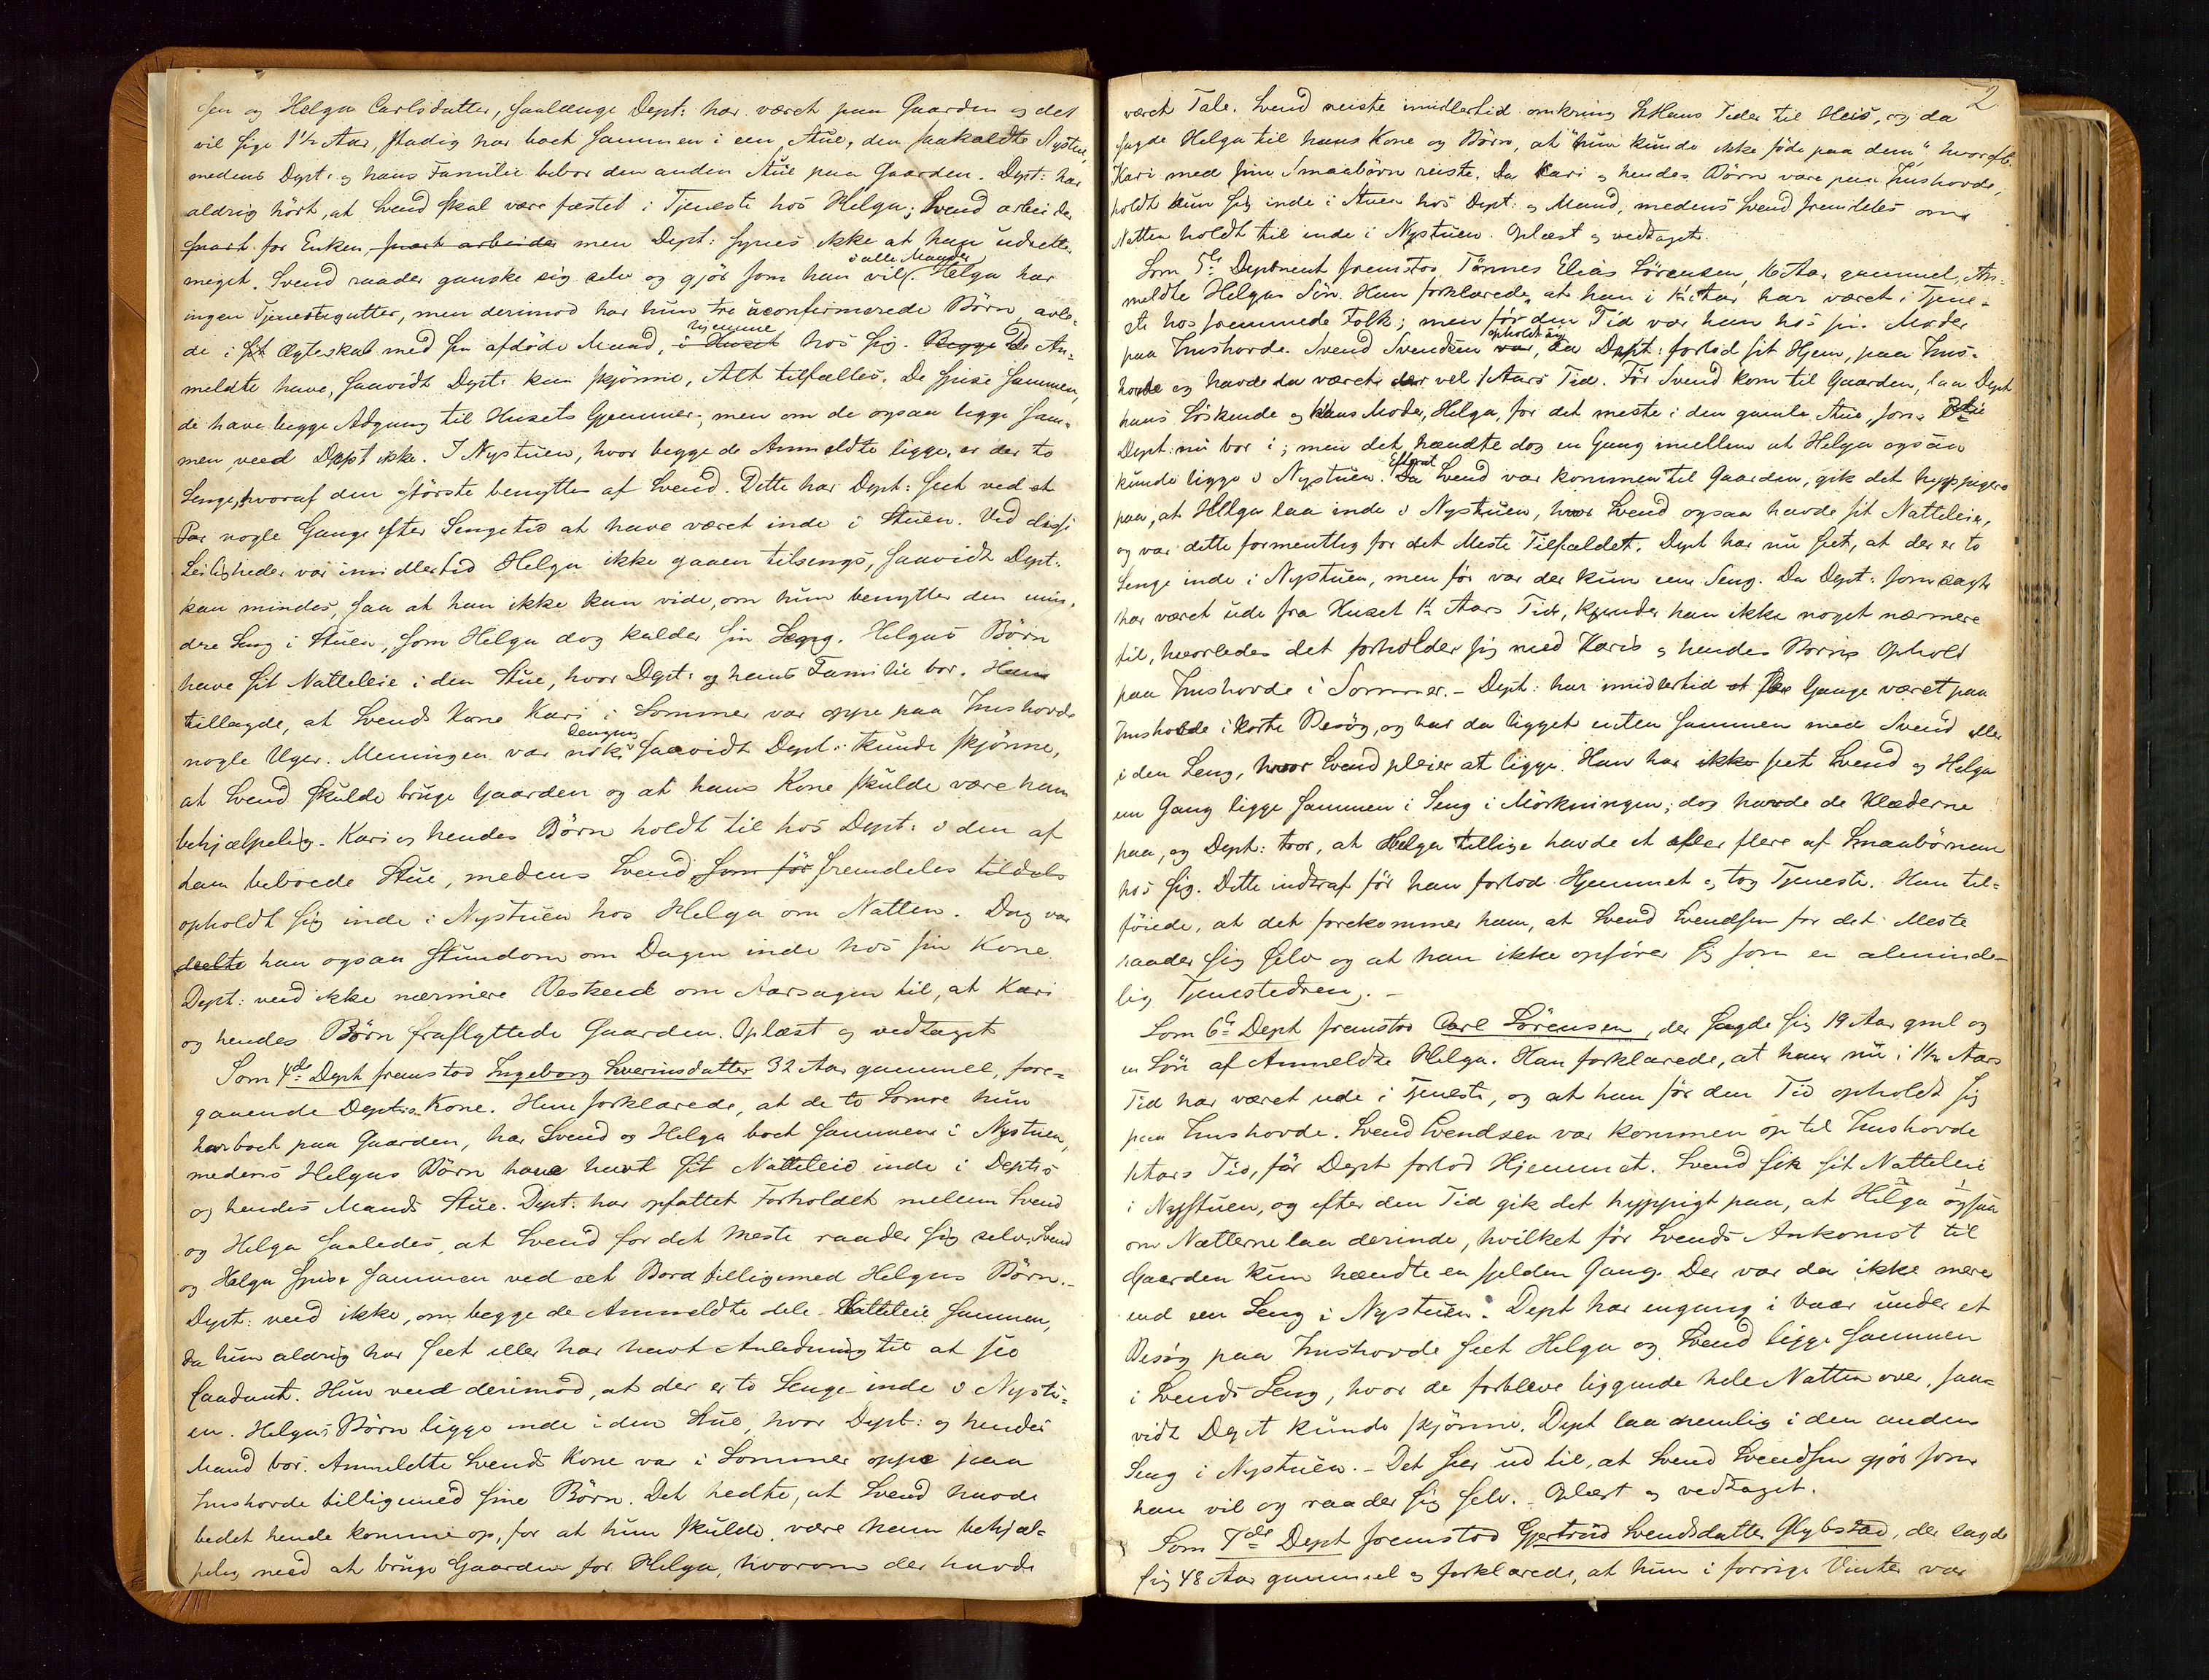 sen og Helga Carlsdatter, saalænge Dept: har været paa Gaarden og det
vil sige 1½ Aar, stadig har boet sammen i een Stue, den saakaldte Nystue,
medens Dept: og hans Familie bebor den anden Stue paa Gaarden. Dept: har
aldrig hørt, at Svend skal være fæstet i Tjeneste hos Helga; Svend arbeider
snart for Enken, snart arbeider men Dept: synes ikke at han udretter
meget. Svend raader ganske sig selv og gjør som han vil i alle Maader. Helga har
ingen Tjenestegutter, men derimod har hun tre uconfirmerede Børn, avle-
de i sit Ægteskab med sin afdøde Mand, i Huset hjemme hos sig. Begge De An-
meldte have, saavidt Dept: kan skjønne, Alt tilfælles. De spise sammen,
de have begge Adgang til Husets Gjemmer; men om de ogsaa ligge sam-
men, veed Dept ikke. I Nystuen, hvor begge de Anmeldte ligge, er der to
Senge, hvoraf den største benyttes af Svend. Dette har Dept: seet ved et
Par nogle Gange efter Sengetid at have været inde i Stuen. Ved disse
Leiligheder var imidlertid Helga ikke gaaen tilsengs, saavidt Dept:
kan mindes, saa at han ikke kan vide, om hun benytter den min-
dre Seng i Stuen, som Helga dog kalder sin Seng. Helgas Børn
have sit Natteleie i den Stue, hvor Dept: og hans Familie bor. Han
tillagde, at Svends Kone Kari i Sommer var oppe paa Imshovde
nogle Uger. Meningen var nok dengang, saavidt Dept: kunde skjønne,
at Svend skulde bruge Gaarden og at hans Kone skulde være ham
behjælpelig. Kari og hendes Børn holdt til hos Dept: i den af
ham beboede Stue, medens Svend som før fremdeles tildels
opholdt sig inde i Nystuen hos Helga om Natten. Dog var
deelte han ogsaa stundom om Dagen inde hos sin Kone.
Dept: veed ikke nærmere Beskeed om Aarsagen til, at Kari
og hendes Børn fraflyttede Gaarden. Oplæst og vedtaget
Som 4de Dept fremstod Ingeborg Sverinsdatter 32 Aar gammel, fore-
gaaende Deptes Kone. Hun forklarede, at de to Somre hun
har boet paa Gaarden, har Svend og Helga boet sammen i Nystuen,
medens Helgas Børn have havt sit Natteleie inde i Deptes
og hendes Mands Stue. Dept: har opfattet Forholdet mellem Svend
og Helga saaledes, at Svend for det meste raader sig selv. Svend
og Helga spise sammen ved eet Bord tilligemed Helgas Børn.
Dept: veed ikke, om begge de Anmeldte dele Natteleie sammen,
da hun aldrig har seet eller har havt Anledning til at see
saadant. Hun veed derimod, at der er to Senge inde i Nystu-
en. Helgas Børn ligge inde i den Stue, hvor Dept: og hendes
Mand bor. Anmeldte Svends Kone var i Sommer oppe paa
Imshovde tilligemed sine Børn. Det hedte, at Svend havde
bedet hende komme op, for at hun skulde være ham behjæl-
pelig med at bruge Gaarden for Helga, hvorom der havde
2
været Tale. Svend reiste imidlertid omkring St Hans Tider til Heis, og da
sagde Helga til hans Kone og Børn, at "hun kunde ikke føde paa dem", hvorefter
Kari med sine Smaabørn reiste. Da Kari og hendes Børn vare paa Imshovde,
holdt hun sig inde i Stuen hos Dept: og Mand, medens Svend fremdeles om
Natten holdt til inde i Nystuen. Oplæst og vedtaget.
Som 5te Deponent fremstod Tønnes Elias Sørensen, 16 Aar gammel, An-
meldte Helgas Søn. Han forklarede, at han i 1½ Aar har været i Tjene-
ste hos fremmede Folk; men før den Tid var han hos sin Moder
paa Imshovde. Svend Svendsen var opholdt sig, da Dept: forlod sit Hjem, paa Ims-
hovde og havde da været der vel 1 Aars Tid. Før Svend kom til Gaarden, laa Dept
hans Søskende og hans Moder, Helga, for det meste i den gamle Stue, som
Dept: nu bor i; men det hændte dog en Gang imellem at Helga ogsaa
kunde ligge i Nystuen. Da Efterat Svend var kommen til Gaarden, gik det hyppigere
paa, at Helga laa inde i Nystuen, hvor Svend ogsaa havde sit Natteleie,
og var dette formentlig for det Meste Tilfældet. Dept har nu seet, at der er to
Senge inde i Nystuen, men før var der kun een Seng. Da Dept: som sagt
har været ude fra Huset 1½ Aars Tid, kjender han ikke noget nærmere
til, hvorledes det forholder sig med Karis og hendes Børns Ophold
paa Imshovde i Sommer. - Dept: har imidlertid et Par Gange været paa
Imshovde i korte Besøg, og har da ligget enten sammen med Svend eller
i den Seng, hvor Svend pleier at ligge. Han har ikke seet Svend og Helga
en Gang ligge sammen i Seng i Mørkningen; dog havde de Klæderne
paa, og Dept: tror, at Helga tillige havde et eller flere af Smaabørnene
hos sig. Dette indtraf før han forlod Hjemmet og tog Tjeneste. Han til-
føiede, at det forekommer ham, at Svend Svendsen for det Meste
raader sig selv og at han ikke opfører sig som en alminde-
lig Tjenestedreng. -
Som 6te Dept fremstod Carl Sørensen, der sagde sig 19 Aar gml og
en Søn af Anmeldte Helga. Han forklarede, at han nu i 1½ Aars
Tid har været ude i Tjeneste, og at han før den Tid opholdt sig
paa Imshovde. Svend Svendsen var kommen op til Imshovde
1 Aars Tid, før Dept forlod Hjemmet. Svend fik sit Natteleie
i Nystuen, og efter den Tid gik det hyppigt paa, at Helga ogsaa
om Nætterne laa derinde, hvilket før Svends Ankomst til
Gaarden kun hændte en sjelden Gang. Der var da ikke mere
end een Seng i Nystuen. Dept har engang i Vaar under et
Besøg paa Imshovde seet Helga og Svend ligge sammen
i Svends Seng, hvor de forbleve liggende hele Natten over, saa-
vidt Dept kunde skjønne. Dept laa nemlig i den anden
Seng i Nystuen. - Det ser ud til, at Svend Svendsen gjør som
han vil og raader sig selv. - Oplæst og vedtaget.
Som 7de Dept fremstod Gjertrud Svendsdatter Glybstad, der sagde
sig 48 Aar gammel og forklarede, at hun i forrige Vinter var